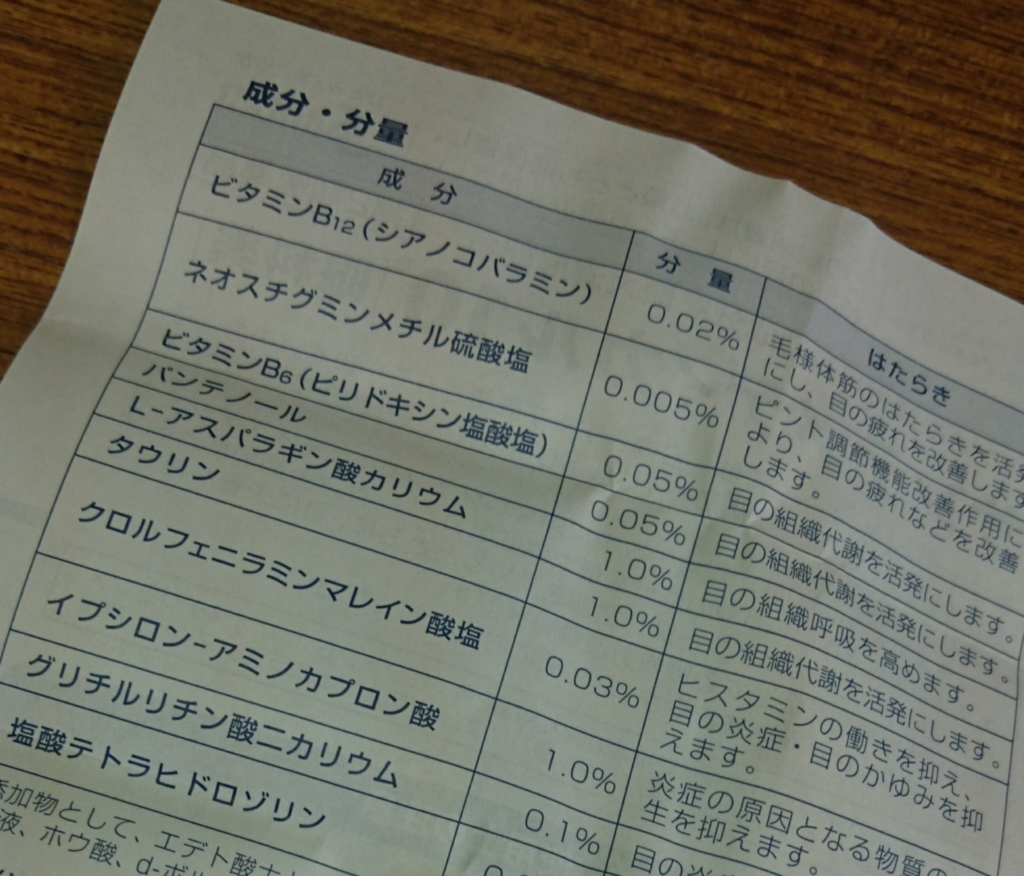 成分・分量
成分 分量 はたらき
ビタミンB12(シアノコバラミン) 0.02% 毛様体筋のはたらきを活発
にし、目の疲れを改善します
ネオスチグミンメチル硫酸塩 0.005% ピント調節機能改善作用に
より、目の疲れなどを改善
します。
ビタミンB6(ピリドキシン塩酸塩) 0.05% 目の組織代謝を活発にします。
パンテノール 0.05% 目の組織代謝を活発にします。
L-アスパラギン酸カリウム 1.0% 目の組織呼吸を高めます。
タウリン 1.0% 目の組織代謝を活発にします。
クロルフェニラミンマレイン酸塩 0.03% ヒスタミンの働きを抑え、
目の炎症・目のかゆみを抑
えます。
イプシロン-アミノカプロン酸 1.0% 炎症の原因となる物質の
生を抑えます。
グリチルリチン酸二カリウム 0.1% 目の炎
塩酸テトラヒドロゾリン
添加物として、エデト酸ナト
液、ホウ酸、d-ボル